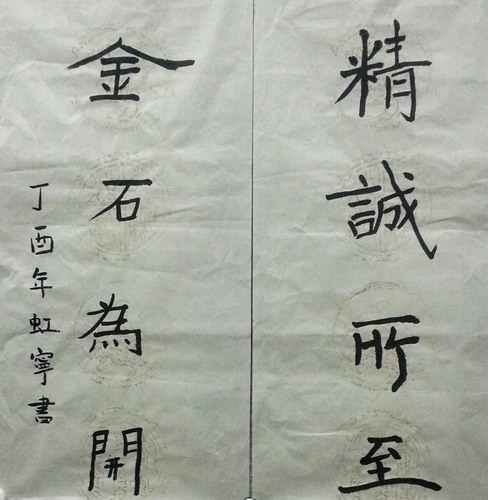 精誠所至
金石為開
丁酉年虹寧書